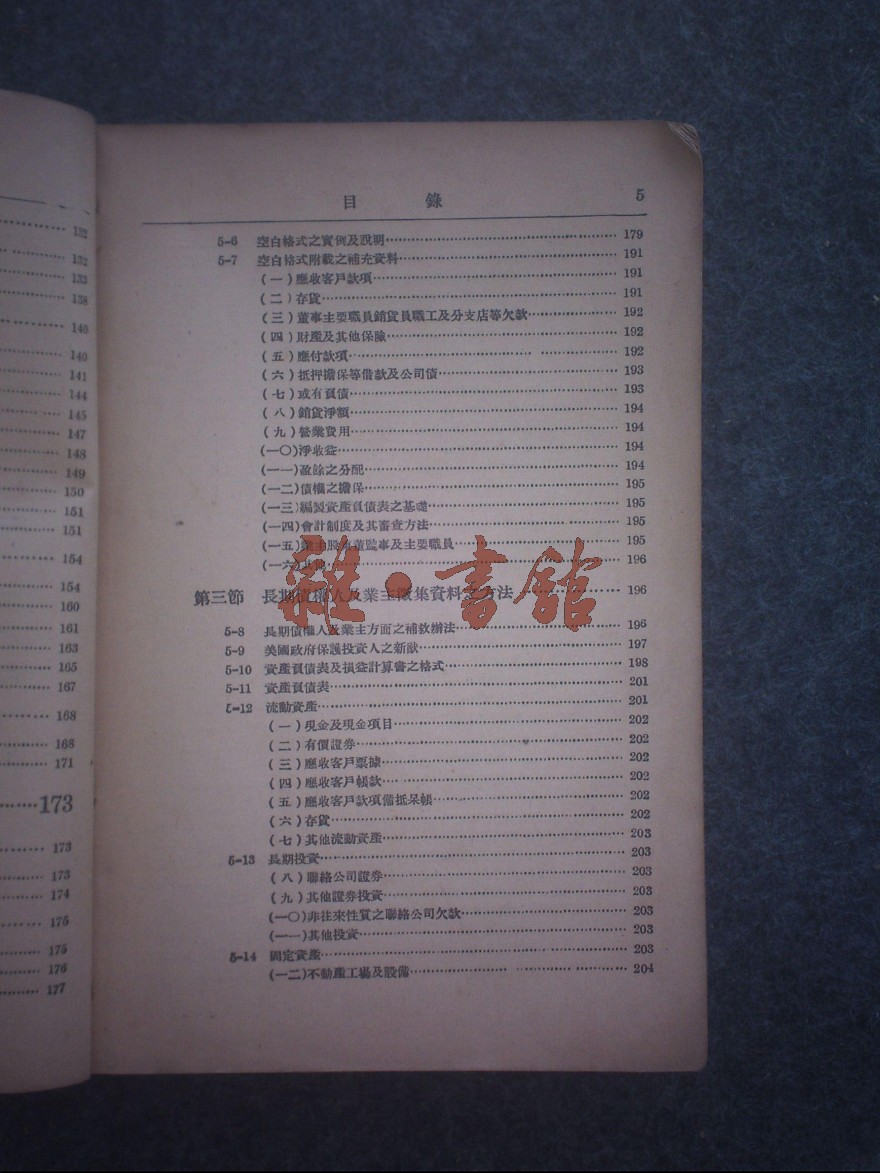 132
132
133
138
140
140
141
144
145
147
148
149
150
151
151
154
154
160
161
163
165
167
168
168
171
173
173
173
174
175
175
176
177
目錄 5
5-6 空白格式之實例及說明 179
5-7 空白格式附載之補充資料 191
(一)應收客戶款項 191
(二)存貨 191
(三)董事主要職員銷貨員職工及分支店等欠款 192
(四)財產及其他保險 192
(五)應付款項 192
(六)抵押擔保等借款及公司債 193
(七)或有負債 193
(八)銷貨淨額 194
(九)營業費用 194
(一〇)淨收益 194
(一一)盈餘之分配 194
(一二)債權之擔保 195
(一三)編製資產負債表之基礎 195
(一四)會計制度及其審查方法 195
(一五)業主股東董監事及主要職員 195
(一六)其他 196
第三節 長期債權人及業主徵集資料之方法 196
5-8 長期債權人及業主方面之補救辦法 196
5-9 美國政府保護投資人之新猷 197
5-10 資產負債表及損益計算書之格式 198
5-11 資產負債表 201
5-12 流動資產 201
(一)現金及現金項目 202
(二)有價證券 202
(三)應收客戶票據 202
(四)應收客戶帳款 202
(五)應收客戶款項備抵呆帳 202
(六)存貨 202
(七)其他流動資產 203
5-13 長期投資 203
(八)聯絡公司證券 203
(九)其他證券投資 203
(一〇)非往來性質之聯絡公司欠款 203
(一一)其他投資 203
5-14 固定資產 203
(一二)不動產工場及設備 204
雜·書館